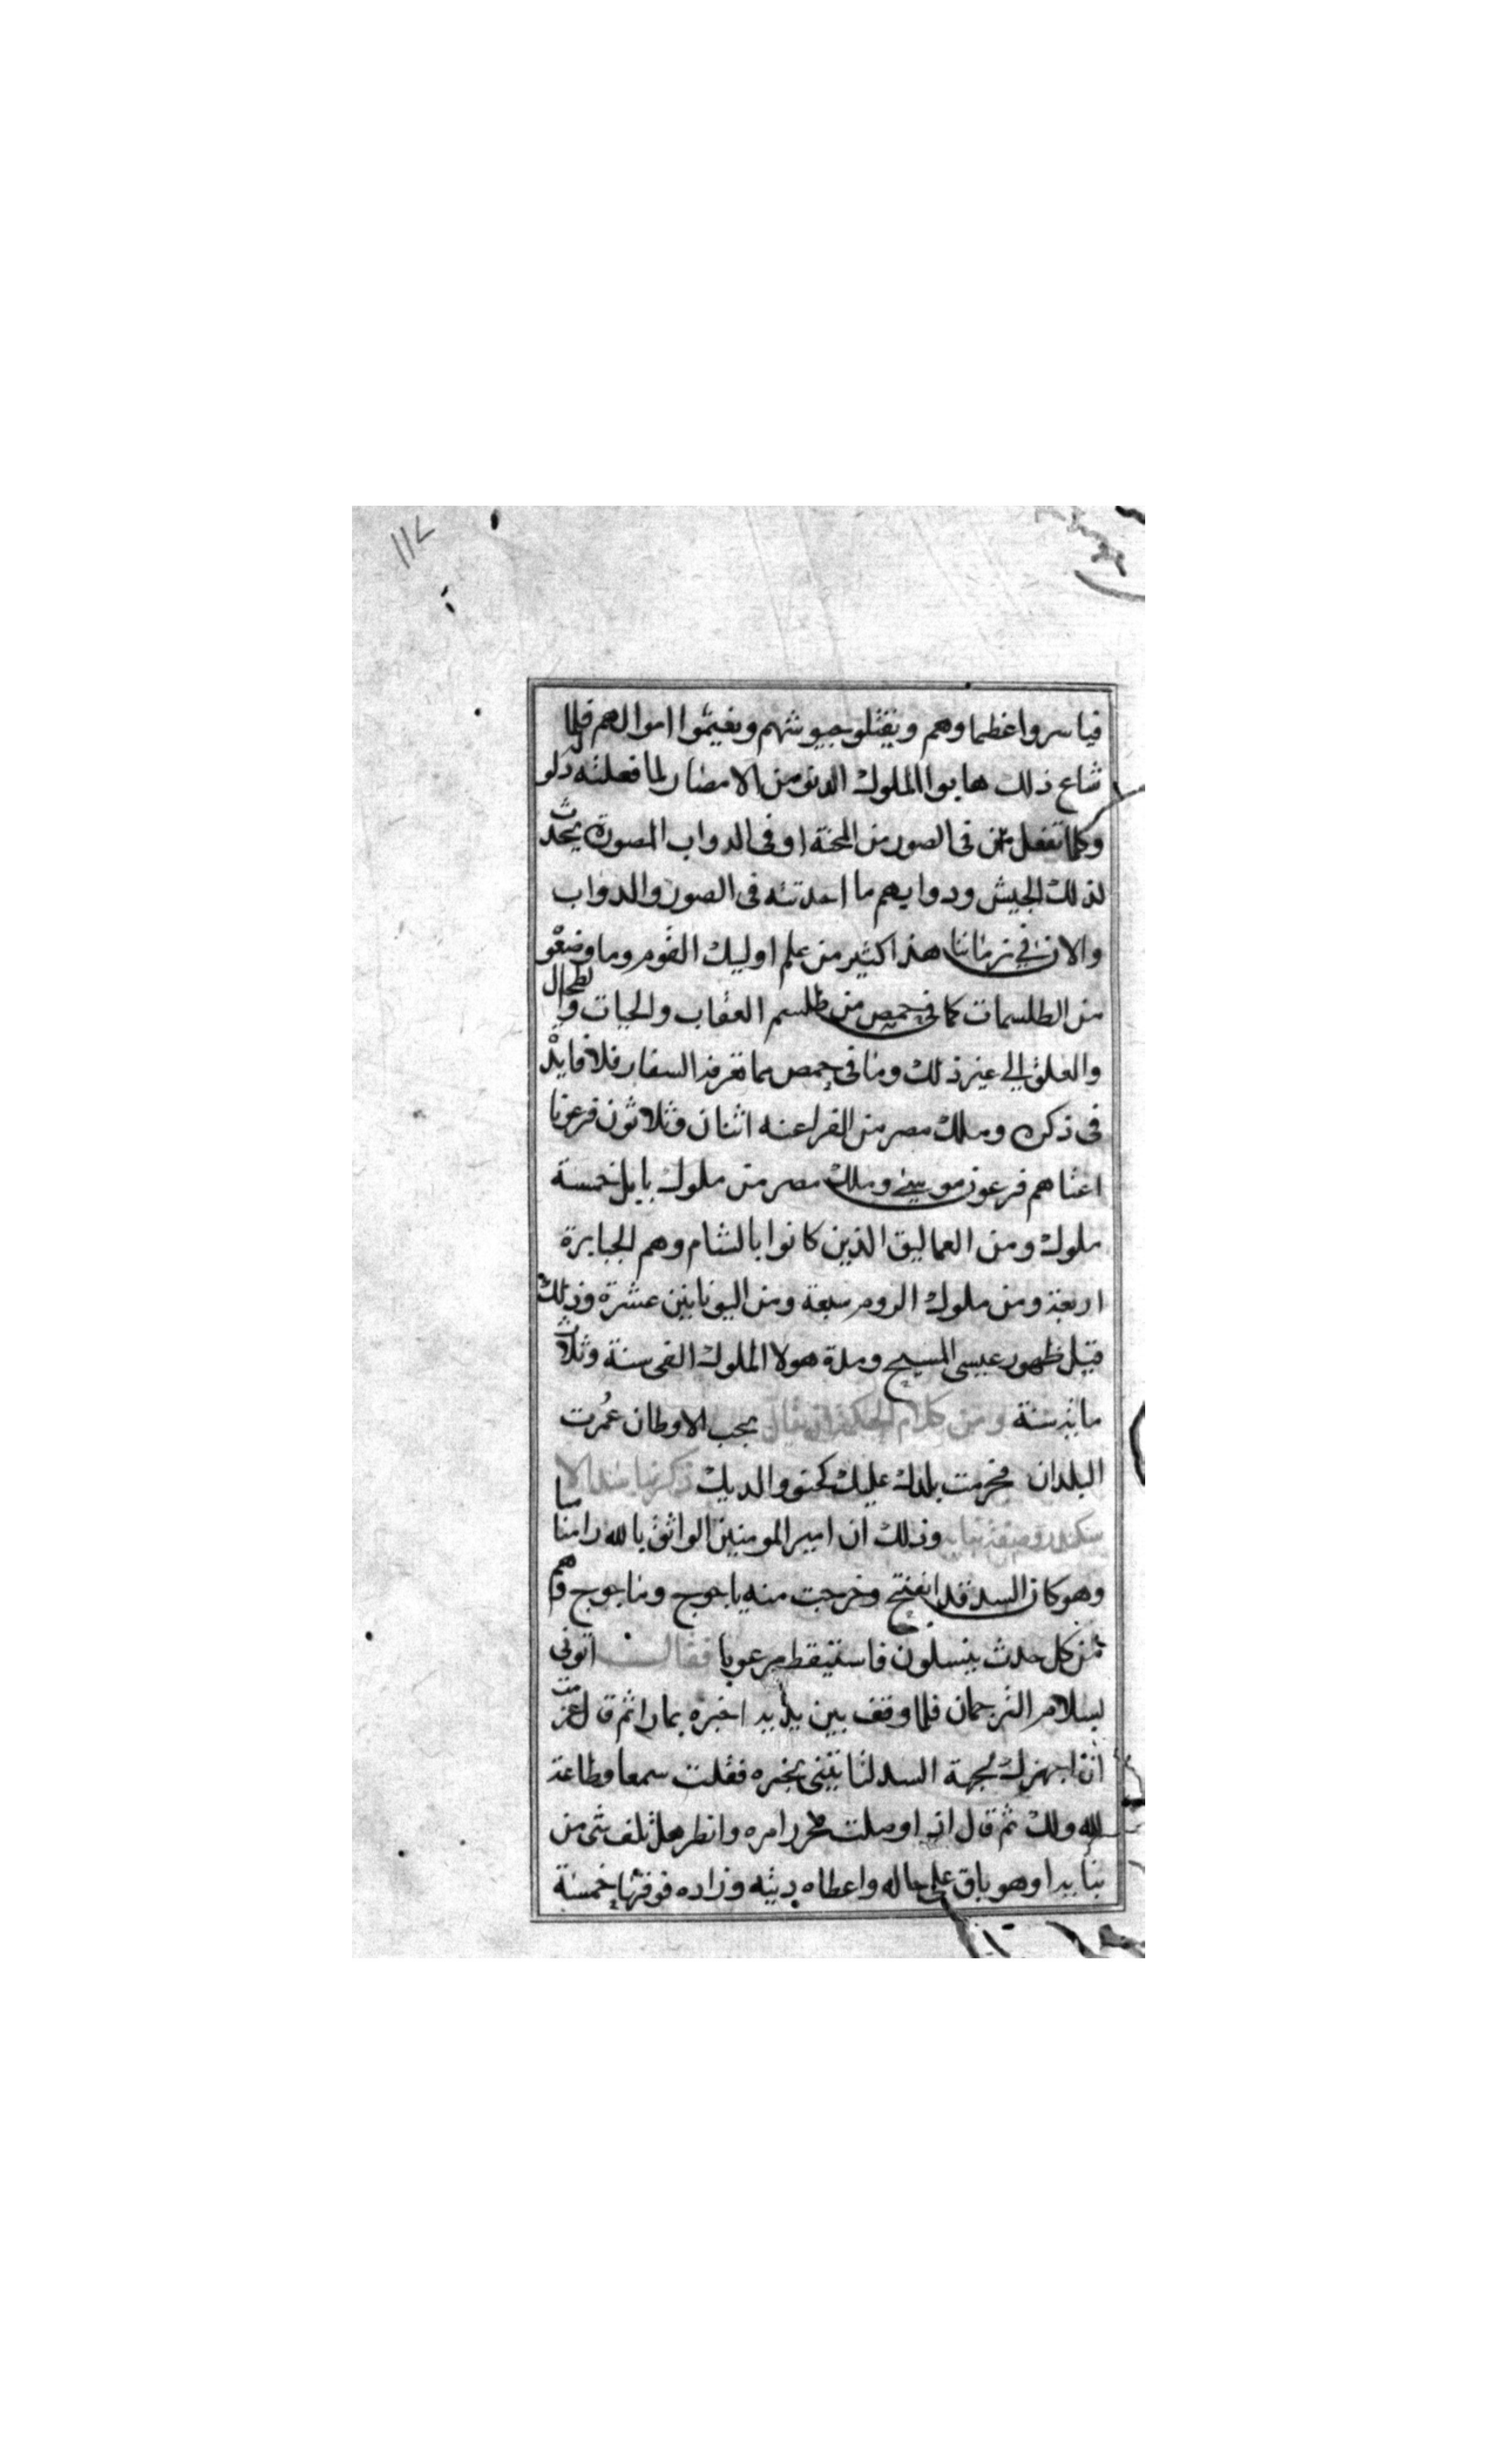 ١١٧
فياسروا عظماوهم ويقتلو جيوشهم ويغيموا اموالهم فلما
شاع ذلك هابوا الملوك الدنو من الامصار لما فعلته دلو
وكلما تفعل من فى الصور من المحنة او فى الدواب المصورة يحدث
لذلك الجيش ودوابهم ما احدثته فى الصور والدواب
والان فى زماننا هذا كثير من علم اوليك القوم وما وضعو
من الطلسمات كما فى حمص من طلسم العقاب والحيات والطحال
والعلق الى غير ذلك وما فى حمص مما تعرفه السفار فلا فايدة
فى ذكره وملك مصر من الفراعنه اثنان وثلاثون فرعونا
اعتاهم فرعون موسى وملك مصر من ملوك بابل خمسة
ملوك ومن العماليق الذين كانوا بالشام وهم الجبابرة
اربعة ومن ملوك الروم سبعة ومن اليونانين عشرة وذلك
قبل ظهور عيسى المسيح ومدة هولا الملوك الفى سنة وثلاث
مايه سنة ومن كلام الحكمة ان يقال بحب الاوطان عمرت
البلدان فحرمت بلدك عليك كحنو والديك ذكر بنا سد الا
سكندر وصفة بنايه وذلك ان امير المومنين الواثق بالله راى مناما
وهو كان السد قد انفتح وخرجت منه ياجوج وماجوج وهم
من كل حدث ينسلون فاستيقظ مرعوبا فقال اتونى
بسلام الترجمان فلما وقف بين يديه اخبره بما راى ثم قال عزمت
ان اجهزك لجهة السد لتاتينى بخبره فقلت سمعا وطاعة
لله ولك ثم قال اذا وصلت حرر امره وانظر هل تلف شى من
بنايه او هو باق على حاله واعطاه ديته وزاده فوقها خمسة